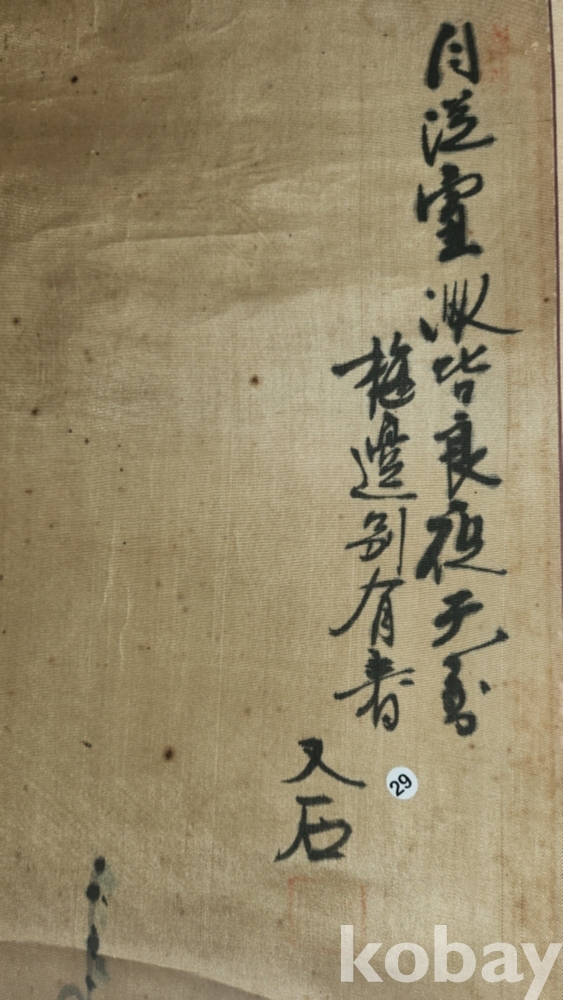 月從雪後皆良夜天
梅邊別有春
又石
29
kobay